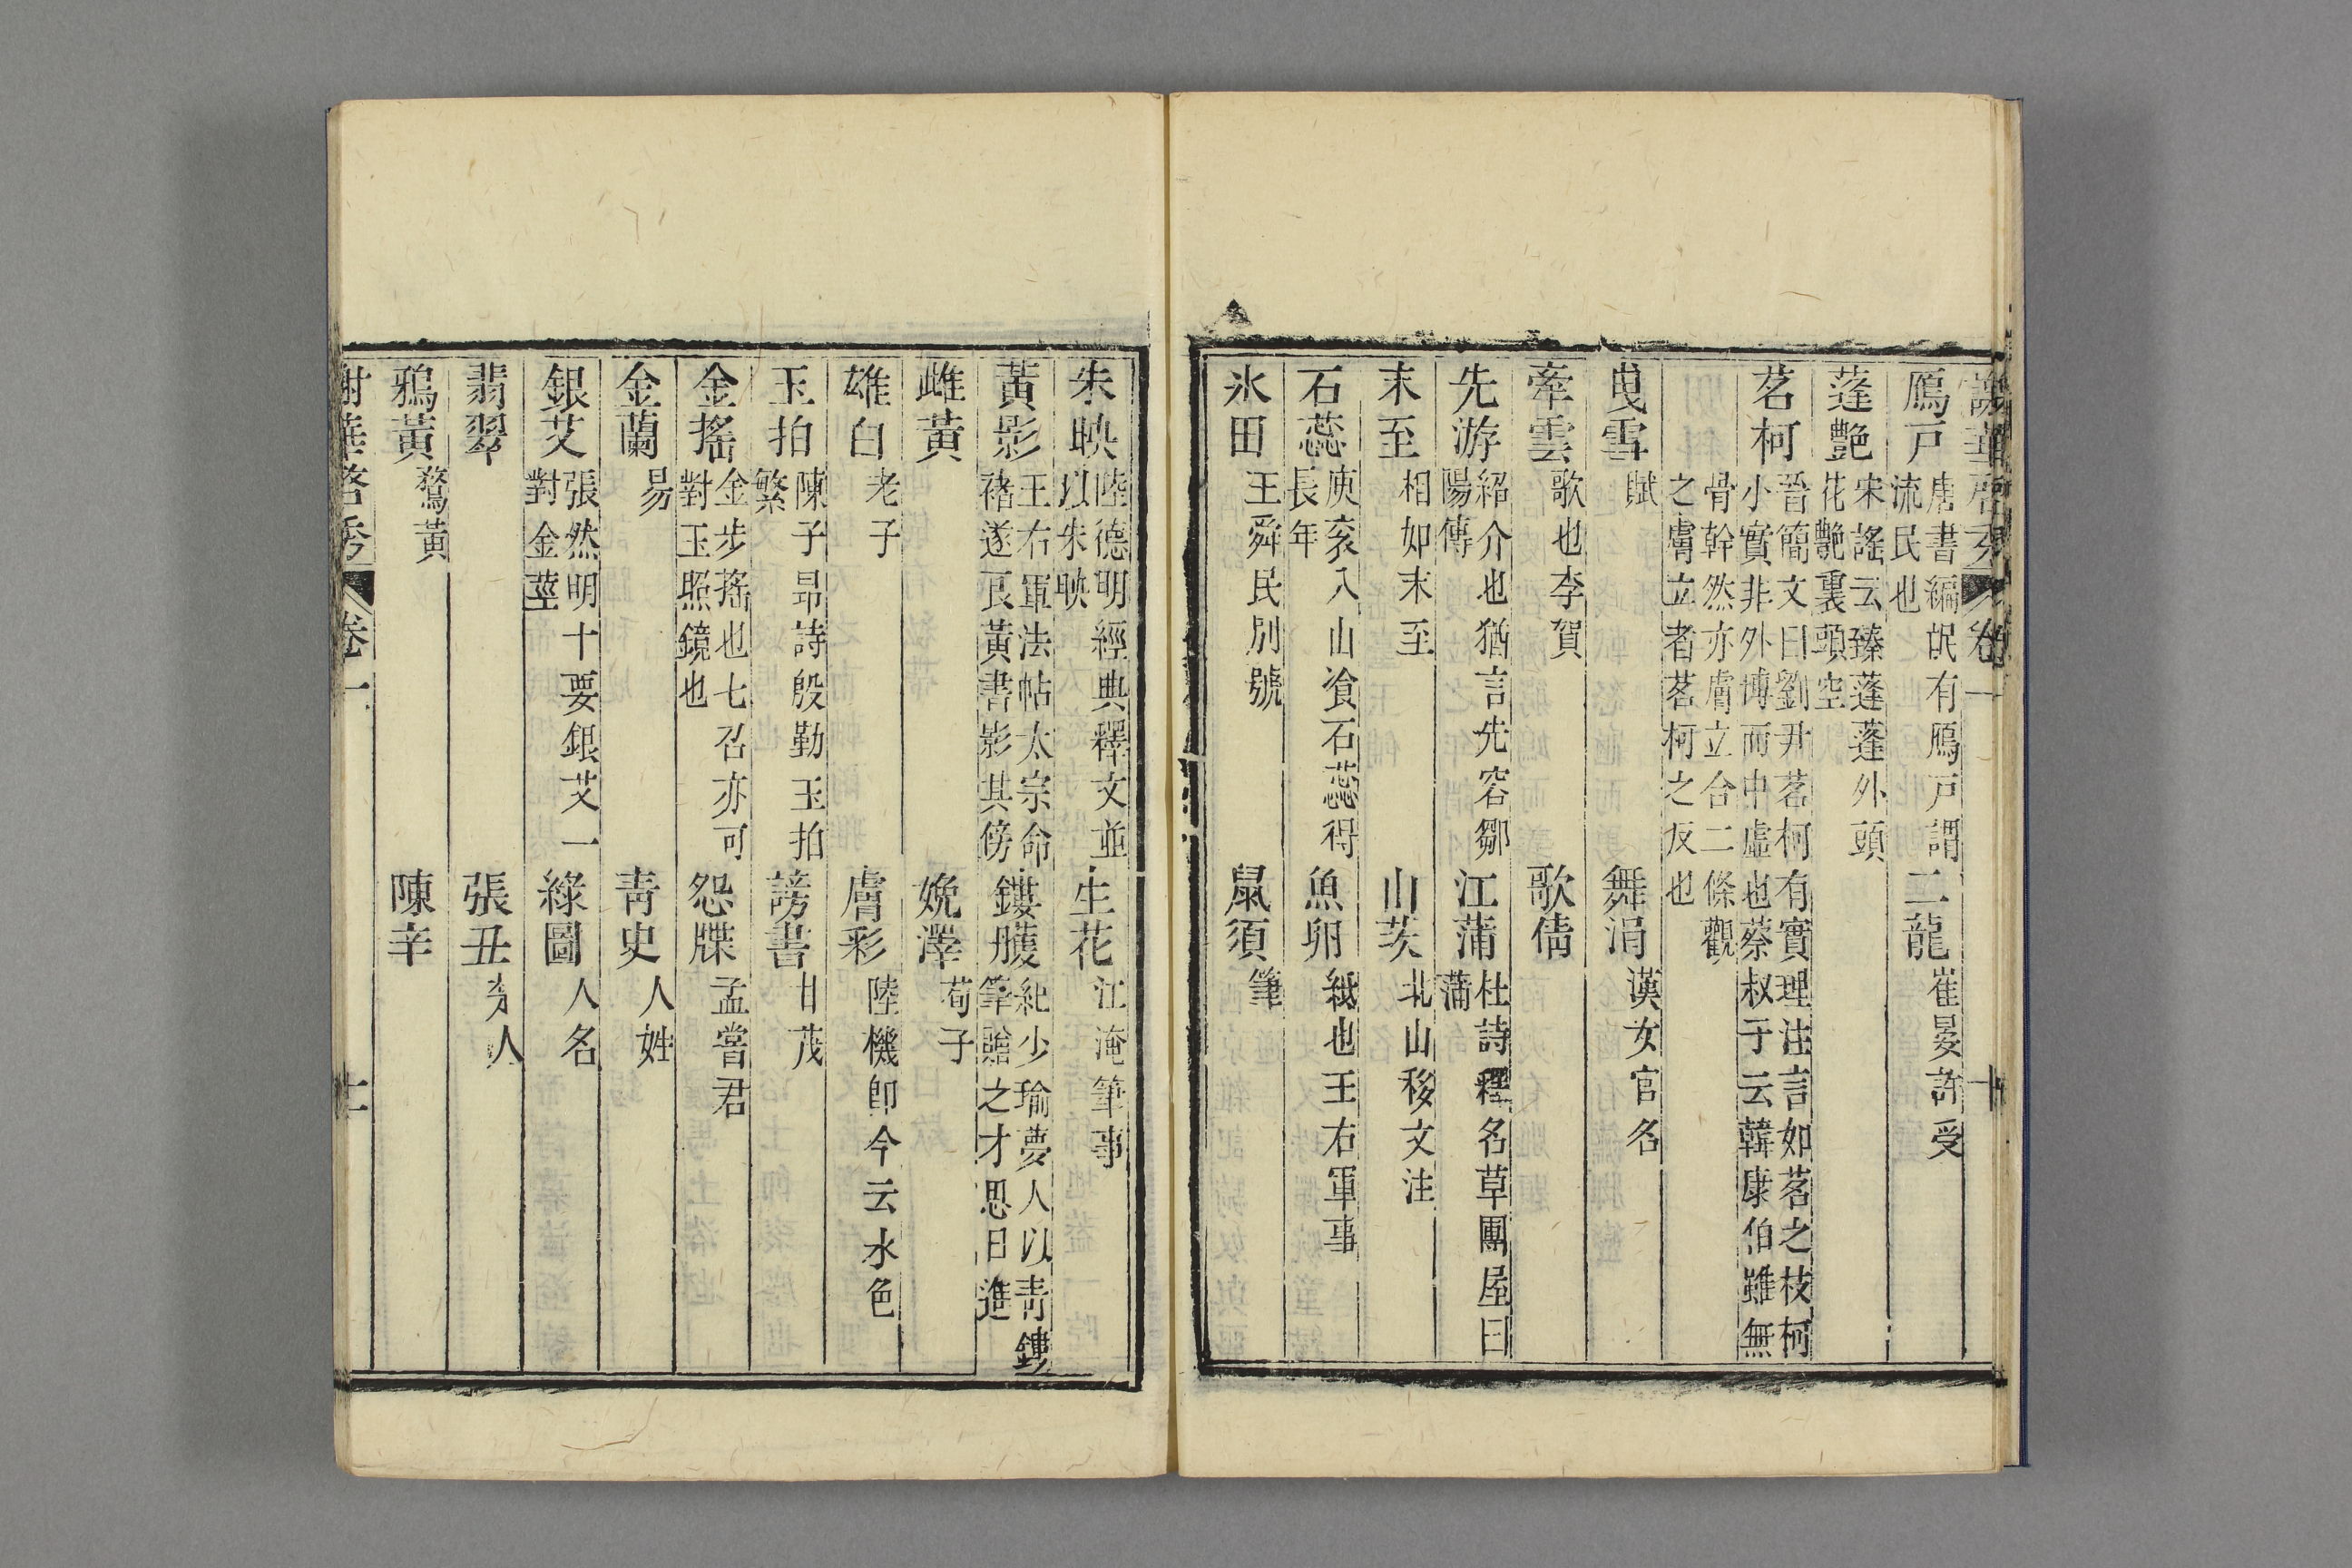 謝華啓秀 卷一 十
鴈戸 唐書編㲽有鴈戸謂流民也 二龍 崔晏許受
蓬艷 宋謠云臻蓬蓬外頭花艷裏頭空
茗柯 晉簡文曰劉尹茗柯有實理注言如茗之枝柯小實非外博而中虛也蔡叔子云韓康伯雖無
骨幹然亦膚立合二條觀之膚立者茗柯之反也
曳雪 賦 舞涓 漢女官名
牽雲 歌也李賀 歌倩
先游 紹介也猶言先容鄒陽傳 江蒲 杜詩釋名草團屋曰蒲
末至 相如末至 山茨 北山移文注
石蕊 庾衮入山飡石蕊得長年 魚卵 紙也王右軍事
氷田 王舜民別號 鼠須 筆
朱映 陸德明經典釋文並以朱映 生花 江淹筆事
黃影 王右軍法帖太宗命褚遂良黃書影其傍 鏤雘 紀少瑜夢人以青鏤筆貽之才思日進
雌黃 娩澤 荀子
雄白 老子 膚彩 陸機即今云水色
玉拍 陳子昂詩殷勤玉拍繁 謗書 甘茂
金搖 金步搖也七召亦可對玉照鏡也 怨牒 孟嘗君
金蘭 易 青史 人姓
銀艾 張然明十要銀艾一對金莖 綠圖 人名
翡翠 張丑 人
鴉黃 鶖黃 陳辛
謝華啓秀 卷一 十